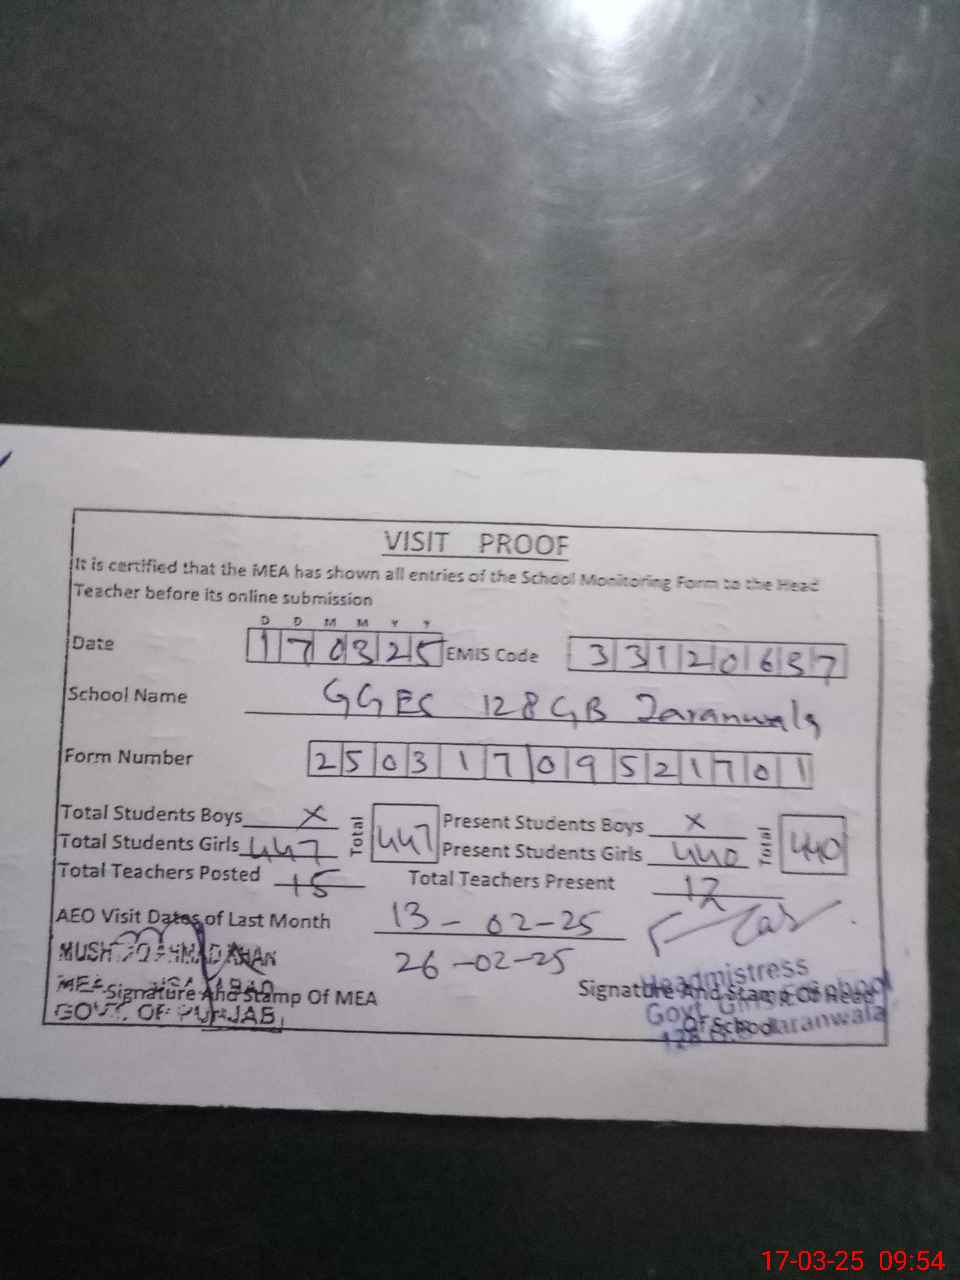 VISIT PROOF
It is certified that the MEA has shown all entries of the School Monitoring Form to the Head
Teacher before its online submission
D D M M Y Y
Date 170325 EMIS Code 33120637
School Name GGES 128 GB Jaranwala
Form Number 25031709521701
Total Students Boys X Total 447 Present Students Boys X Total 440
Total Students Girls 447 Present Students Girls 440
Total Teachers Posted 15 Total Teachers Present 12
AEO Visit Dates of Last Month 13-02-25
26-02-25
MUSHTAQ AHMAD KHAN
MEA
Signature And Stamp Of MEA
GOVT. OF PUNJAB
Signature And Stamp Of Head
Of School
Headmistress
Govt. Girls School
128 Jaranwala
17-03-25 09:54